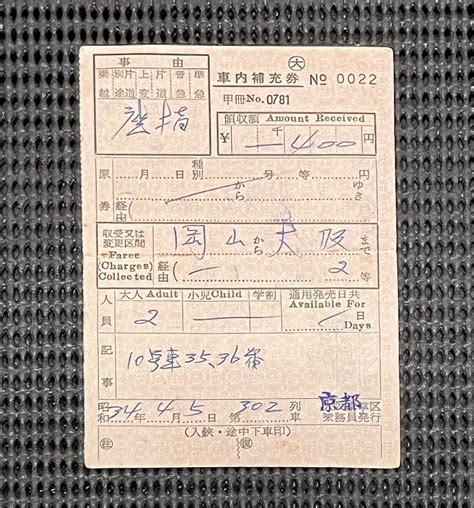 事由 大
車内補充券 No 0022
甲冊No.0781
乗越 別途 片道 上変 片道 普急 準急
領収額 Amount Received
座指
¥ 千 400 円
原 年 月 日 種別 号 等 円
券 経由 から ゆき
収受又は変更区間 岡山から大阪まで
Faree (Charges) Collected
(経由 2 等
人員 大人 Adult 小児Child 学割 通用発売日共 Available For
2 日 Days
記事 10号車35,36番
昭和34年4月5日第302列 京都 車掌区乗務員発行
(入鋏・途中下車印)
注 複